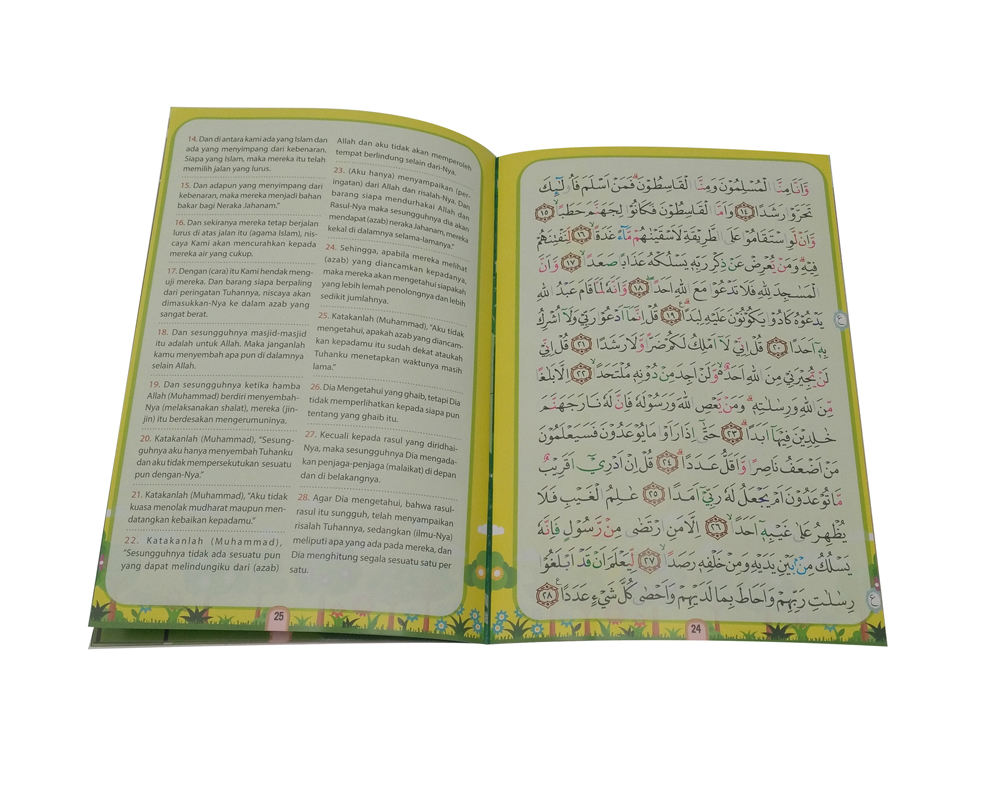 وَّاَنَّا مِنَّا الْمُسْلِمُوْنَ وَمِنَّا الْقَاسِطُوْنَۗ فَمَنْ اَسْلَمَ فَاُولٰۤىِٕكَ
تَحَرَّوْا رَشَدًا ١٤ وَاَمَّا الْقَاسِطُوْنَ فَكَانُوْا لِجَهَنَّمَ حَطَبًاۙ ١٥
وَّاَنْ لَّوِ اسْتَقَامُوْا عَلَى الطَّرِيْقَةِ لَاَسْقَيْنٰهُمْ مَّاۤءً غَدَقًاۙ ١٦ لِّنَفْتِنَهُمْ
فِيْهِۗ وَمَنْ يُّعْرِضْ عَنْ ذِكْرِ رَبِّهٖ يَسْلُكْهُ عَذَابًا صَعَدًاۙ ١٧ وَّاَنَّ
الْمَسٰجِدَ لِلّٰهِ فَلَا تَدْعُوْا مَعَ اللّٰهِ اَحَدًاۖ ١٨ وَّاَنَّهٗ لَمَّا قَامَ عَبْدُ اللّٰهِ
يَدْعُوْهُ كَادُوْا يَكُوْنُوْنَ عَلَيْهِ لِبَدًاۗ ١٩ قُلْ اِنَّمَآ اَدْعُوْا رَبِّيْ وَلَآ اُشْرِكُ
بِهٖٓ اَحَدًا ٢٠ قُلْ اِنِّيْ لَآ اَمْلِكُ لَكُمْ ضَرًّا وَّلَا رَشَدًا ٢١ قُلْ اِنِّيْ
لَنْ يُّجِيْرَنِيْ مِنَ اللّٰهِ اَحَدٌ ەۙ وَّلَنْ اَجِدَ مِنْ دُوْنِهٖ مُلْتَحَدًاۙ ٢٢ اِلَّا بَلٰغًا
مِّنَ اللّٰهِ وَرِسٰلٰتِهٖۗ وَمَنْ يَّعْصِ اللّٰهَ وَرَسُوْلَهٗ فَاِنَّ لَهٗ نَارَ جَهَنَّمَ
خٰلِدِيْنَ فِيْهَآ اَبَدًاۗ ٢٣ حَتّٰىٓ اِذَا رَاَوْا مَا يُوْعَدُوْنَ فَسَيَعْلَمُوْنَ
مَنْ اَضْعَفُ نَاصِرًا وَّاَقَلُّ عَدَدًاۗ ٢٤ قُلْ اِنْ اَدْرِيْٓ اَقَرِيْبٌ
مَّا تُوْعَدُوْنَ اَمْ يَجْعَلُ لَهٗ رَبِّيْٓ اَمَدًا ٢٥ عٰلِمُ الْغَيْبِ فَلَا
يُظْهِرُ عَلٰى غَيْبِهٖٓ اَحَدًاۙ ٢٦ اِلَّا مَنِ ارْتَضٰى مِنْ رَّسُوْلٍ فَاِنَّهٗ
يَسْلُكُ مِنْۢ بَيْنِ يَدَيْهِ وَمِنْ خَلْفِهٖ رَصَدًاۙ ٢٧ لِّيَعْلَمَ اَنْ قَدْ اَبْلَغُوْا
رِسٰلٰتِ رَبِّهِمْ وَاَحَاطَ بِمَا لَدَيْهِمْ وَاَحْصٰى كُلَّ شَيْءٍ عَدَدًاۚ ٢٨
ع
ع
24
14. Dan di antara kami ada yang Islam dan
ada yang menyimpang dari kebenaran.
Siapa yang Islam, maka mereka itu telah
memilih jalan yang lurus.
15. Dan adapun yang menyimpang dari
kebenaran, maka mereka menjadi bahan
bakar bagi Neraka Jahanam."
16. Dan sekiranya mereka tetap berjalan
lurus di atas jalan itu (agama Islam), nis-
caya Kami akan mencurahkan kepada
mereka air yang cukup.
17. Dengan (cara) itu Kami hendak meng-
uji mereka. Dan barang siapa berpaling
dari peringatan Tuhannya, niscaya akan
dimasukkan-Nya ke dalam azab yang
sangat berat.
18. Dan sesungguhnya masjid-masjid
itu adalah untuk Allah. Maka janganlah
kamu menyembah apa pun di dalamnya
selain Allah.
19. Dan sesungguhnya ketika hamba
Allah (Muhammad) berdiri menyembah-
Nya (melaksanakan shalat), mereka (jin-
jin) itu berdesakan mengerumuninya.
20. Katakanlah (Muhammad), "Sesung-
guhnya aku hanya menyembah Tuhanku
dan aku tidak mempersekutukan sesuatu
pun dengan-Nya."
21. Katakanlah (Muhammad), "Aku tidak
kuasa menolak mudharat maupun men-
datangkan kebaikan kepadamu."
22. Katakanlah (Muhammad),
"Sesungguhnya tidak ada sesuatu pun
yang dapat melindungiku dari (azab)
Allah dan aku tidak akan memperoleh
tempat berlindung selain dari-Nya.
23. (Aku hanya) menyampaikan (per-
ingatan) dari Allah dan risalah-Nya. Dan
barang siapa mendurhakai Allah dan
Rasul-Nya maka sesungguhnya dia akan
mendapat (azab) neraka Jahanam, mereka
kekal di dalamnya selama-lamanya."
24. Sehingga, apabila mereka melihat
(azab) yang diancamkan kepadanya,
maka mereka akan mengetahui siapakah
yang lebih lemah penolongnya dan lebih
sedikit jumlahnya.
25. Katakanlah (Muhammad), "Aku tidak
mengetahui, apakah azab yang diancam-
kan kepadamu itu sudah dekat ataukah
Tuhanku menetapkan waktunya masih
lama."
26. Dia Mengetahui yang ghaib, tetapi Dia
tidak memperlihatkan kepada siapa pun
tentang yang ghaib itu.
27. Kecuali kepada rasul yang diridhai-
Nya, maka sesungguhnya Dia mengada-
kan penjaga-penjaga (malaikat) di depan
dan di belakangnya.
28. Agar Dia mengetahui, bahwa rasul-
rasul itu sungguh, telah menyampaikan
risalah Tuhannya, sedangkan (ilmu-Nya)
meliputi apa yang ada pada mereka, dan
Dia menghitung segala sesuatu satu per
satu.
25